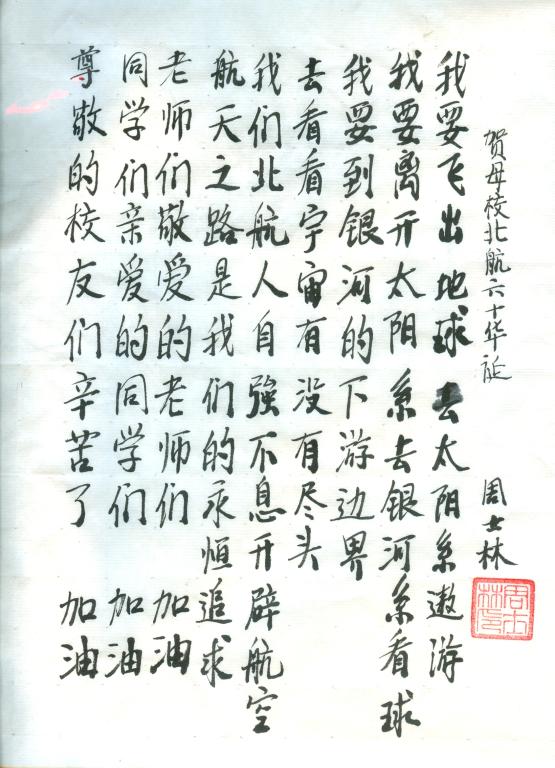 贺母校北航六十华诞 周士林
我要飞出地球去太阳系遨游
我要离开太阳系去银河系看球
我要到银河的下游边界
去看看宇宙有没有尽头
我们北航人自強不息开辟航空
航天之路是我们的永恒追求
老师们敬爱的老师们 加油
同学们亲爱的同学们 加油
尊敬的校友们辛苦了 加油
周士林印